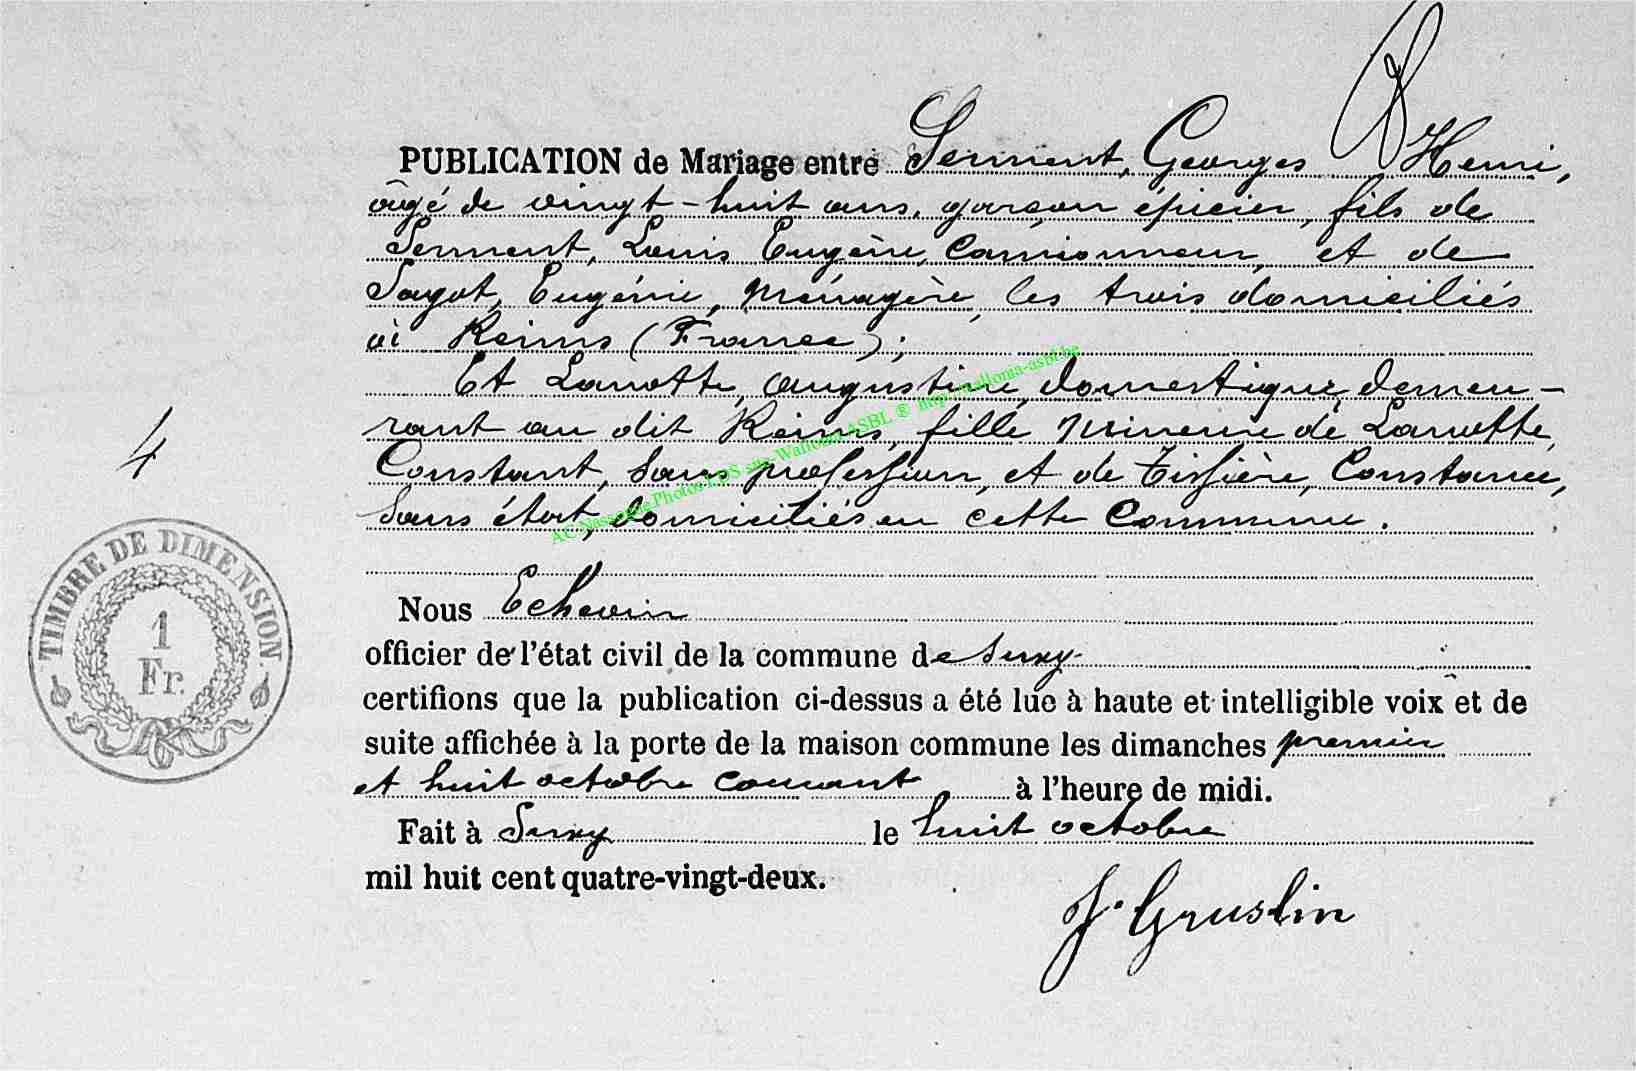 PUBLICATION de Mariage entre Serment, Georges Henri,
âgé de vingt-huit ans, garçon épicier, fils de
Serment, Louis Eugène, Camionneur, et de
Sagot, Eugénie, Ménagère, les trois domiciliés
à Reims (France);
Et Lamotte, Augustine, domestique, demeu-
rant au dit Reims, fille mineure de Lamotte,
Constant, sans profession, et de Tissière, Constance,
sans état, domiciliés en cette Commune.
4
TIMBRE DE DIMENSION.
1
Fr.
AC Nassogne Photos LDS site-Wallonia ASBL ® http://wallonia-asbl.be
Nous Echevin
officier de l'état civil de la commune de Suxy
certifions que la publication ci-dessus a été lue à haute et intelligible voix et de
suite affichée à la porte de la maison commune les dimanches premier
et huit octobre courant à l'heure de midi.
Fait à Suxy le huit octobre
mil huit cent quatre-vingt-deux.
J. Gruslin